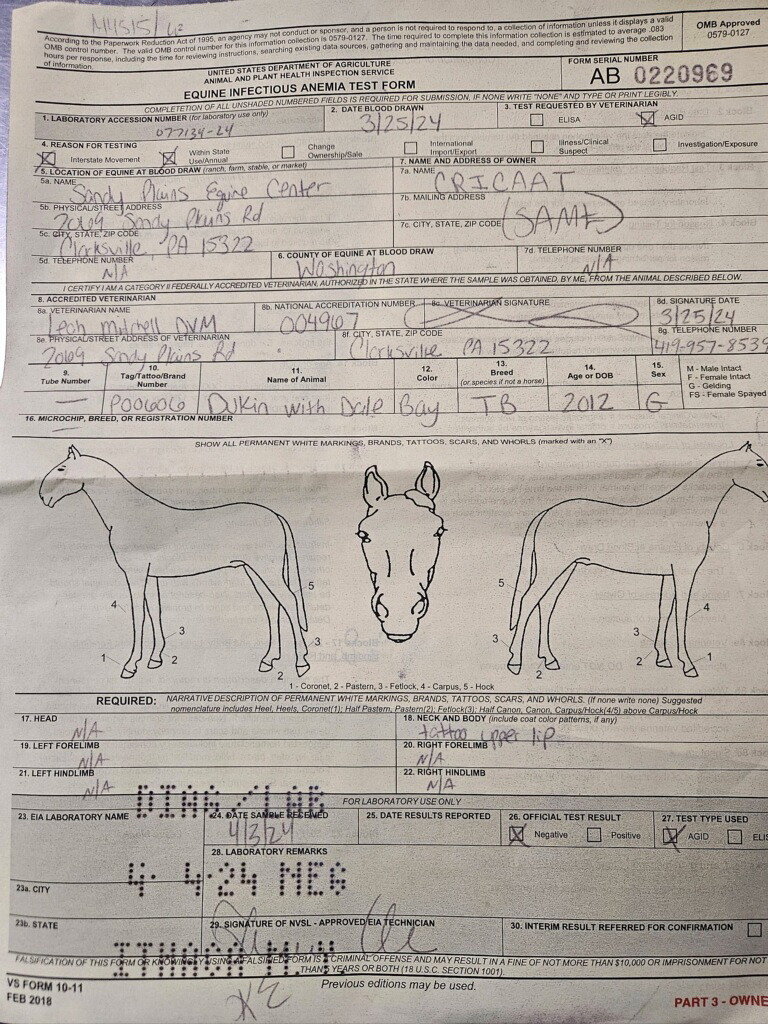 According to the Paperwork Reduction Act of 1995, an agency may not conduct or sponsor, and a person is not required to respond to, a collection of information unless it displays a valid
OMB control number. The valid OMB control number for this information collection is 0579-0127. The time required to complete this information collection is estimated to average .083
hours per response, including the time for reviewing instructions, searching existing data sources, gathering and maintaining the data needed, and completing and reviewing the collection
of information.
OMB Approved
0579-0127
UNITED STATES DEPARTMENT OF AGRICULTURE
ANIMAL AND PLANT HEALTH INSPECTION SERVICE
EQUINE INFECTIOUS ANEMIA TEST FORM
FORM SERIAL NUMBER
AB 0220969
COMPLETION OF ALL UNSHADED NUMBERED FIELDS IS REQUIRED FOR SUBMISSION, IF NONE WRITE "NONE" AND TYPE OR PRINT LEGIBLY.
1. LABORATORY ACCESSION NUMBER (for laboratory use only)
077134-24
2. DATE BLOOD DRAWN
3/25/24
3. TEST REQUESTED BY VETERINARIAN
ELISA
AGID
4. REASON FOR TESTING
Interstate Movement
Within State
Use/Annual
Change
Ownership/Sale
International
Import/Export
Illness/Clinical
Suspect
Investigation/Exposure
5. LOCATION OF EQUINE AT BLOOD DRAW (ranch, farm, stable, or market)
5a. NAME
Sandy Plains Equine Center
5b. PHYSICAL/STREET ADDRESS
2069 Sandy Plains Rd
5c. CITY, STATE, ZIP CODE
Clarksville, PA 15322
5d. TELEPHONE NUMBER
N/A
6. COUNTY OF EQUINE AT BLOOD DRAW
Washington
7. NAME AND ADDRESS OF OWNER
7a. NAME
CRICAAT
7b. MAILING ADDRESS
7c. CITY, STATE, ZIP CODE
(SAME)
7d. TELEPHONE NUMBER
N/A
I CERTIFY I AM A CATEGORY II FEDERALLY ACCREDITED VETERINARIAN, AUTHORIZED IN THE STATE WHERE THE SAMPLE WAS OBTAINED, BY ME, FROM THE ANIMAL DESCRIBED BELOW.
8. ACCREDITED VETERINARIAN
8a. VETERINARIAN NAME
Leah Mitchell DVM
8b. NATIONAL ACCREDITATION NUMBER
004967
8c. VETERINARIAN SIGNATURE
8d. SIGNATURE DATE
3/25/24
8e. PHYSICAL/STREET ADDRESS OF VETERINARIAN
2069 Sandy Plains Rd
8f. CITY, STATE, ZIP CODE
Clarksville PA 15322
8g. TELEPHONE NUMBER
419-957-8539
9.
Tube Number
10.
Tag/Tattoo/Brand
Number
11.
Name of Animal
12.
Color
13.
Breed
(or species if not a horse)
14.
Age or DOB
15.
Sex
M - Male Intact
F - Female Intact
G - Gelding
FS - Female Spayed
— P006606 Dukin with Dale Bay TB 2012 G
16. MICROCHIP, BREED, OR REGISTRATION NUMBER
—
SHOW ALL PERMANENT WHITE MARKINGS, BRANDS, TATTOOS, SCARS, AND WHORLS (marked with an "X")
5
5
4
4
3
3
3
3
1
2
2
2
2
1
1 - Coronet, 2 - Pastern, 3 - Fetlock, 4 - Carpus, 5 - Hock
REQUIRED: NARRATIVE DESCRIPTION OF PERMANENT WHITE MARKINGS, BRANDS, TATTOOS, SCARS, AND WHORLS. (If none write none) Suggested
nomenclature includes Heel, Heels, Coronet(1); Half Pastern, Pastern(2); Fetlock(3); Half Canon, Canon, Carpus/Hock(4/5) above Carpus/Hock
17. HEAD
N/A
18. NECK AND BODY (include coat color patterns, if any)
tattoo upper lip
19. LEFT FORELIMB
N/A
20. RIGHT FORELIMB
N/A
21. LEFT HINDLIMB
N/A
22. RIGHT HINDLIMB
N/A
FOR LABORATORY USE ONLY
DIAG/LAB
23. EIA LABORATORY NAME
24. DATE SAMPLE RECEIVED
4/3/24
25. DATE RESULTS REPORTED
26. OFFICIAL TEST RESULT
Negative
Positive
27. TEST TYPE USED
AGID
ELIS
28. LABORATORY REMARKS
4- 4-24 MEG
23a. CITY
23b. STATE
29. SIGNATURE OF NVSL - APPROVED EIA TECHNICIAN
30. INTERIM RESULT REFERRED FOR CONFIRMATION
ITHACA N.Y.
FALSIFICATION OF THIS FORM OR KNOWINGLY USING A FALSIFIED FORM IS A CRIMINAL OFFENSE AND MAY RESULT IN A FINE OF NOT MORE THAN $10,000 OR IMPRISONMENT FOR NOT
THAN 5 YEARS OR BOTH (18 U.S.C. SECTION 1001).
VS FORM 10-11
FEB 2018
Previous editions may be used.
PART 3 - OWNE